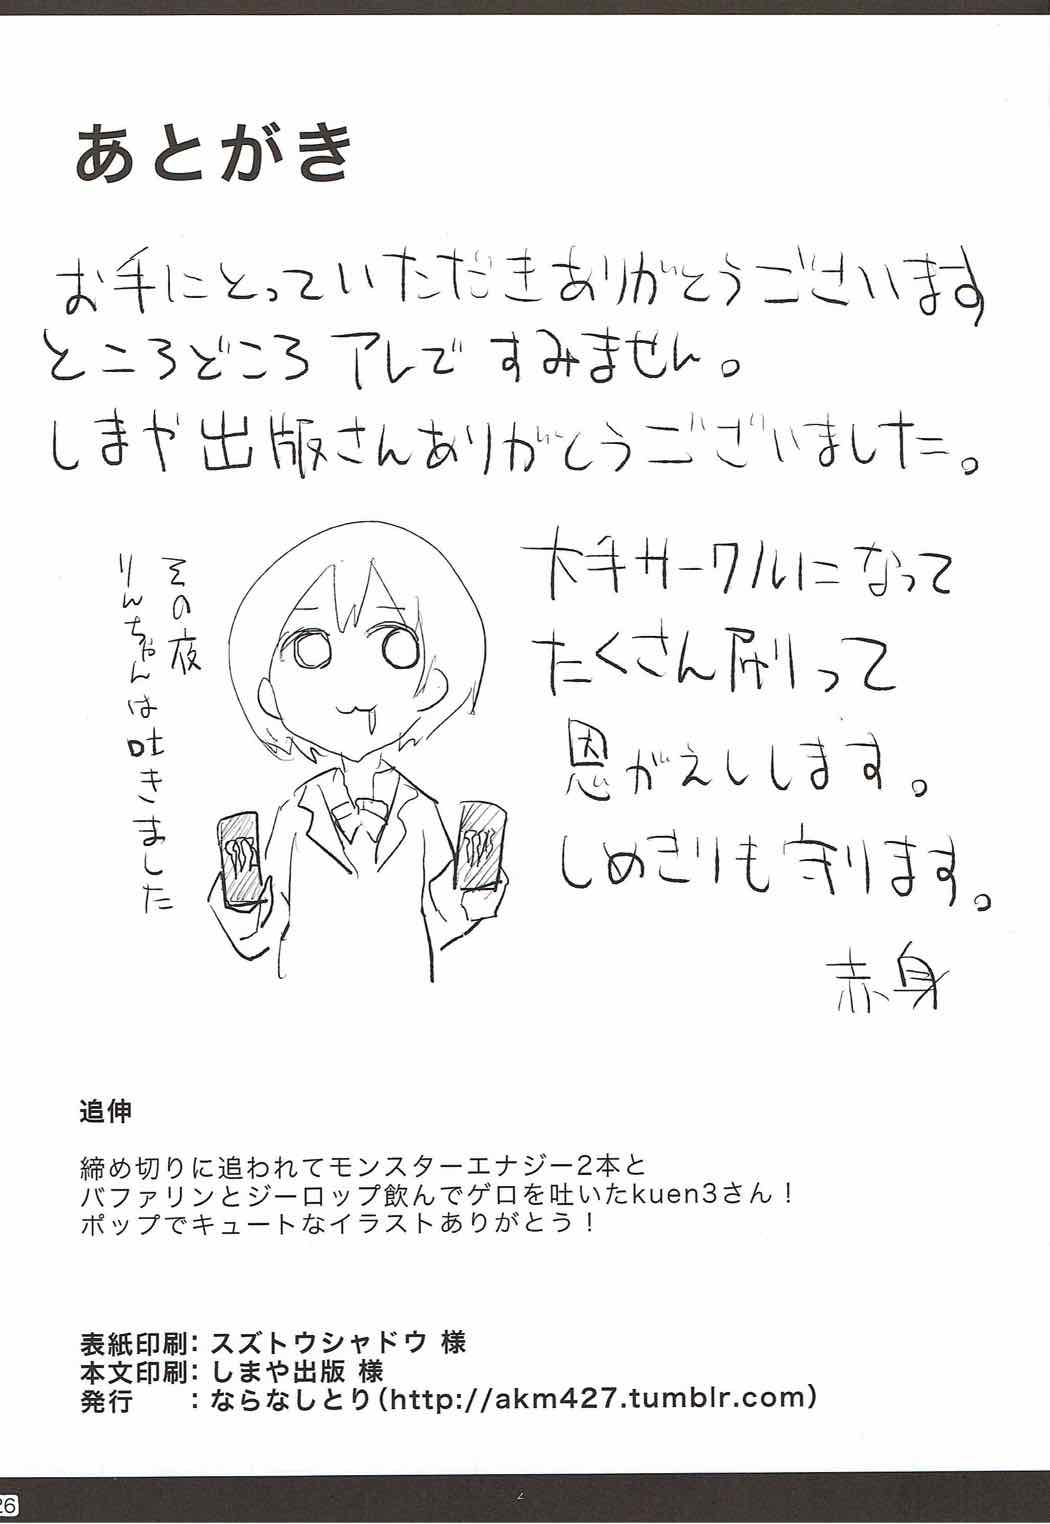 あとがき
お手にとっていただきありがとうございます
ところどころアレですみません。
しまや出版さんありがとうございました。
大手サークルになって
たくさん刷って
恩がえしします。
しめきりも守ります。
赤身
その夜
りんちゃんは吐きました
追伸
締め切りに追われてモンスターエナジー2本と
バファリンとジーロップ飲んでゲロを吐いたkuen3さん！
ポップでキュートなイラストありがとう！
表紙印刷：スズトウシャドウ 様
本文印刷：しまや出版 様
発行　　：ならなしとり（http://akm427.tumblr.com）
26